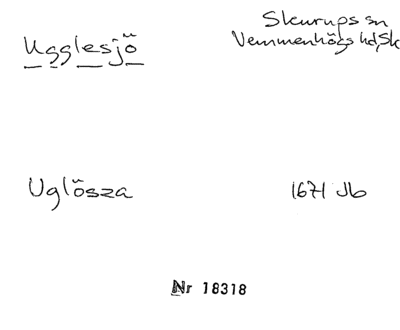 Ugglesjö
Skurups sn
Vemmenhögs hd, Sk
Uglösza
1671 Jb
Nr 18318